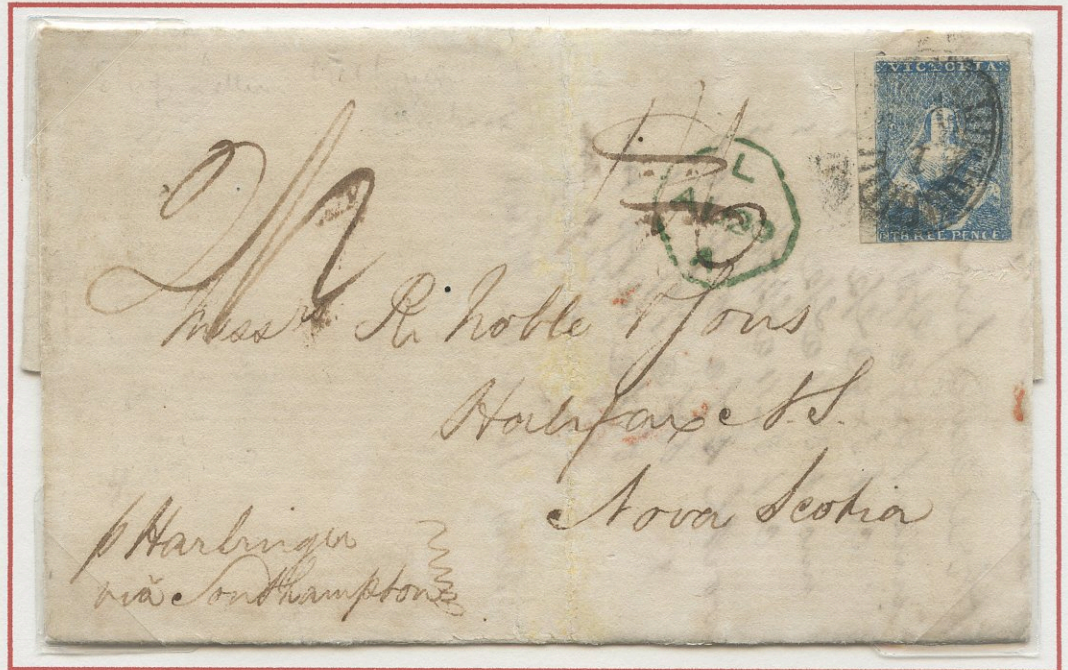 VICTORIA
THREE PENCE
L
AU 29
Messrs R. Noble & Sons
Halifax N.S.
Nova Scotia
p Harbinger
via Southampton